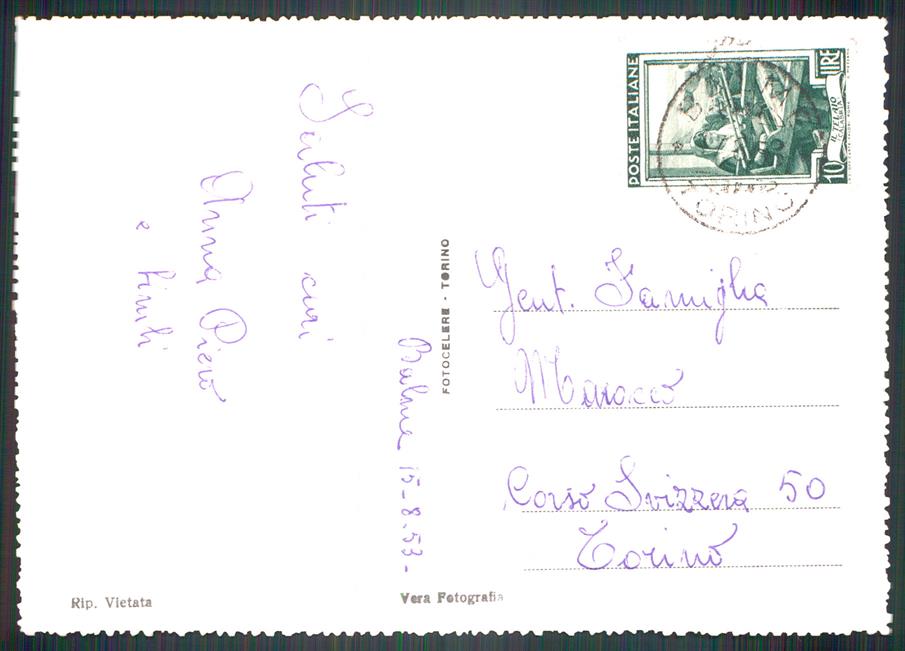 Saluti cari
Anna Piero
e
Balme 15-8.53-
FOTOCELERE - TORINO
Rip. Vietata
Vera Fotografia
POSTE ITALIANE
LIRE
10
IL TELAIO
TORINO
Gent. Famiglia
Marocco
Corso Svizzera 50
Torino